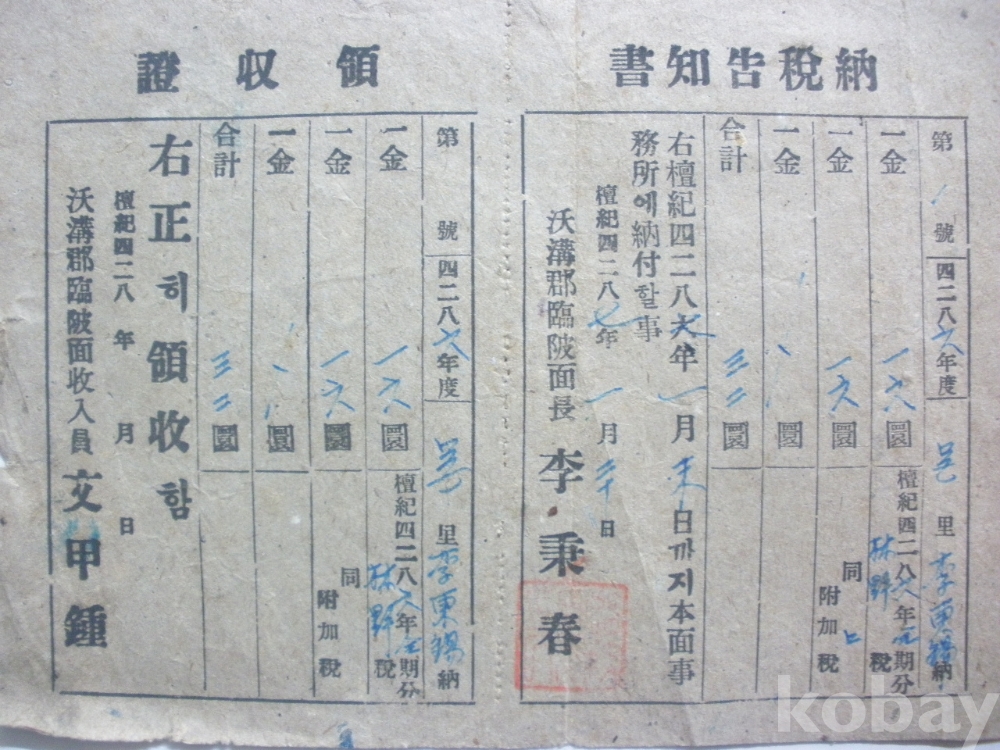 納税告知書
第 號 四二八六年度 里 李東錫 納
一金 一六 圜 檀紀四二八六年 期分 林野 税
一金 一六 圜 同上 附加税
一金 圜
合計 三二 圜
右檀紀四二八 年一月末日까지本面事
務所에納付할事
檀紀四二八七年 一月 二十日
沃溝郡臨陂面長 李秉春
領収證
第 號 四二八六年度 里 李東錫 納
一金 一六 圜 檀紀四二八六年 期分 林野 税
一金 一六 圜 同 附加税
一金 圜
合計 三二 圜
右正히領收함
檀紀四二八 年 月 日
沃溝郡臨陂面收入員 文甲鍾
kobay